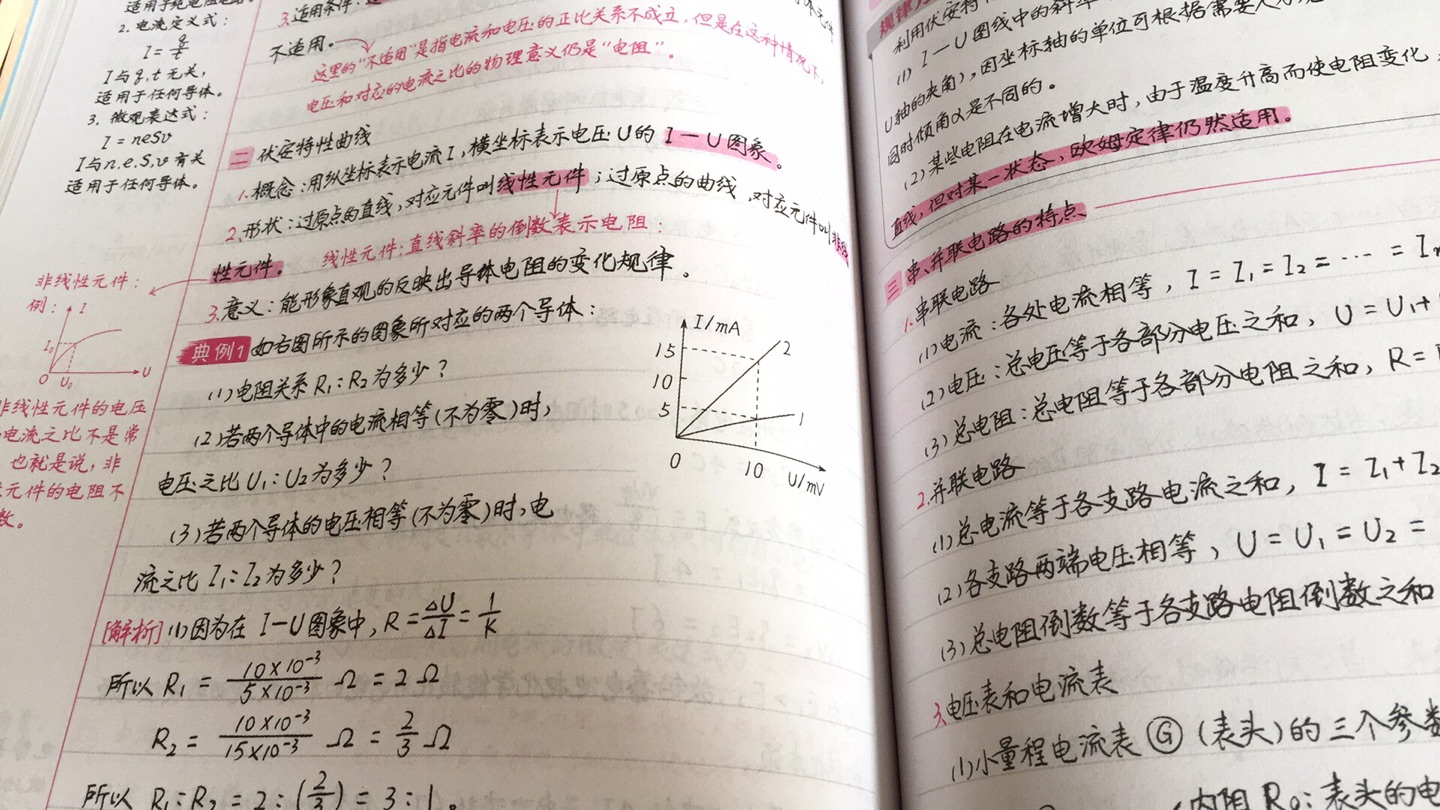 适用于纯电阻电路。
2. 电流定义式：
I = q/t
I与q.t无关，
适用于任何导体。
3. 微观表达式：
I = neSv
I与n.e.S.v有关
适用于任何导体。
非线性元件：
例：
I
I₀
O
U₀
U
非线性元件的电压
电流之比不是常
也就是说，非
元件的电阻不
数。
3.适用条件：
不适用。
这里的“不适用”是指电流和电压的正比关系不成立，但是在这种情况下，
电压和对应的电流之比的物理意义仍是“电阻”。
二 伏安特性曲线
1.概念：用纵坐标表示电流I，横坐标表示电压U的 I—U图象。
2.形状：过原点的直线，对应元件叫线性元件；过原点的曲线，对应元件叫非线
性元件。 线性元件：直线斜率的倒数表示电阻：
3.意义：能形象直观的反映出导体电阻的变化规律。
典例1 如右图所示的图象所对应的两个导体：
(1)电阻关系R₁:R₂为多少？
(2)若两个导体中的电流相等(不为零)时，
电压之比U₁:U₂为多少？
(3)若两个导体的电压相等(不为零)时，电
流之比I₁:I₂为多少？
I/mA
15
10
5
0
10
U/mV
2
1
[解析] (1)因为在 I—U图象中，R = ΔU/ΔI = 1/K
所以 R₁ = 10×10⁻³/5×10⁻³ Ω = 2Ω
R₂ = 10×10⁻³/15×10⁻³ Ω = 2/3 Ω
所以 R₁:R₂ = 2:(2/3) = 3:1。
利用伏安特
(1) I—U图线中的斜率
U轴的夹角)，因坐标轴的单位可根据需要
同时倾角α是不同的。
(2)某些电阻在电流增大时，由于温度升高而使电阻变化
直线，但对某一状态，欧姆定律仍然适用。
三 串、并联电路的特点
1.串联电路
(1)电流：各处电流相等，I = I₁ = I₂ = … = I
(2)电压：总电压等于各部分电压之和，U = U₁+
(3)总电阻：总电阻等于各部分电阻之和，R =
2.并联电路
(1)总电流等于各支路电流之和，I = I₁+I₂
(2)各支路两端电压相等，U = U₁ = U₂ =
(3)总电阻倒数等于各支路电阻倒数之和
3.电压表和电流表
(1)小量程电流表 G (表头)的三个参数
内阻 R₀：表头的电